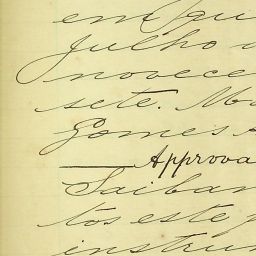 em qu
Julho d
novece
sete. Ma
Gomes
Approva
Saibam
tos este
instrum